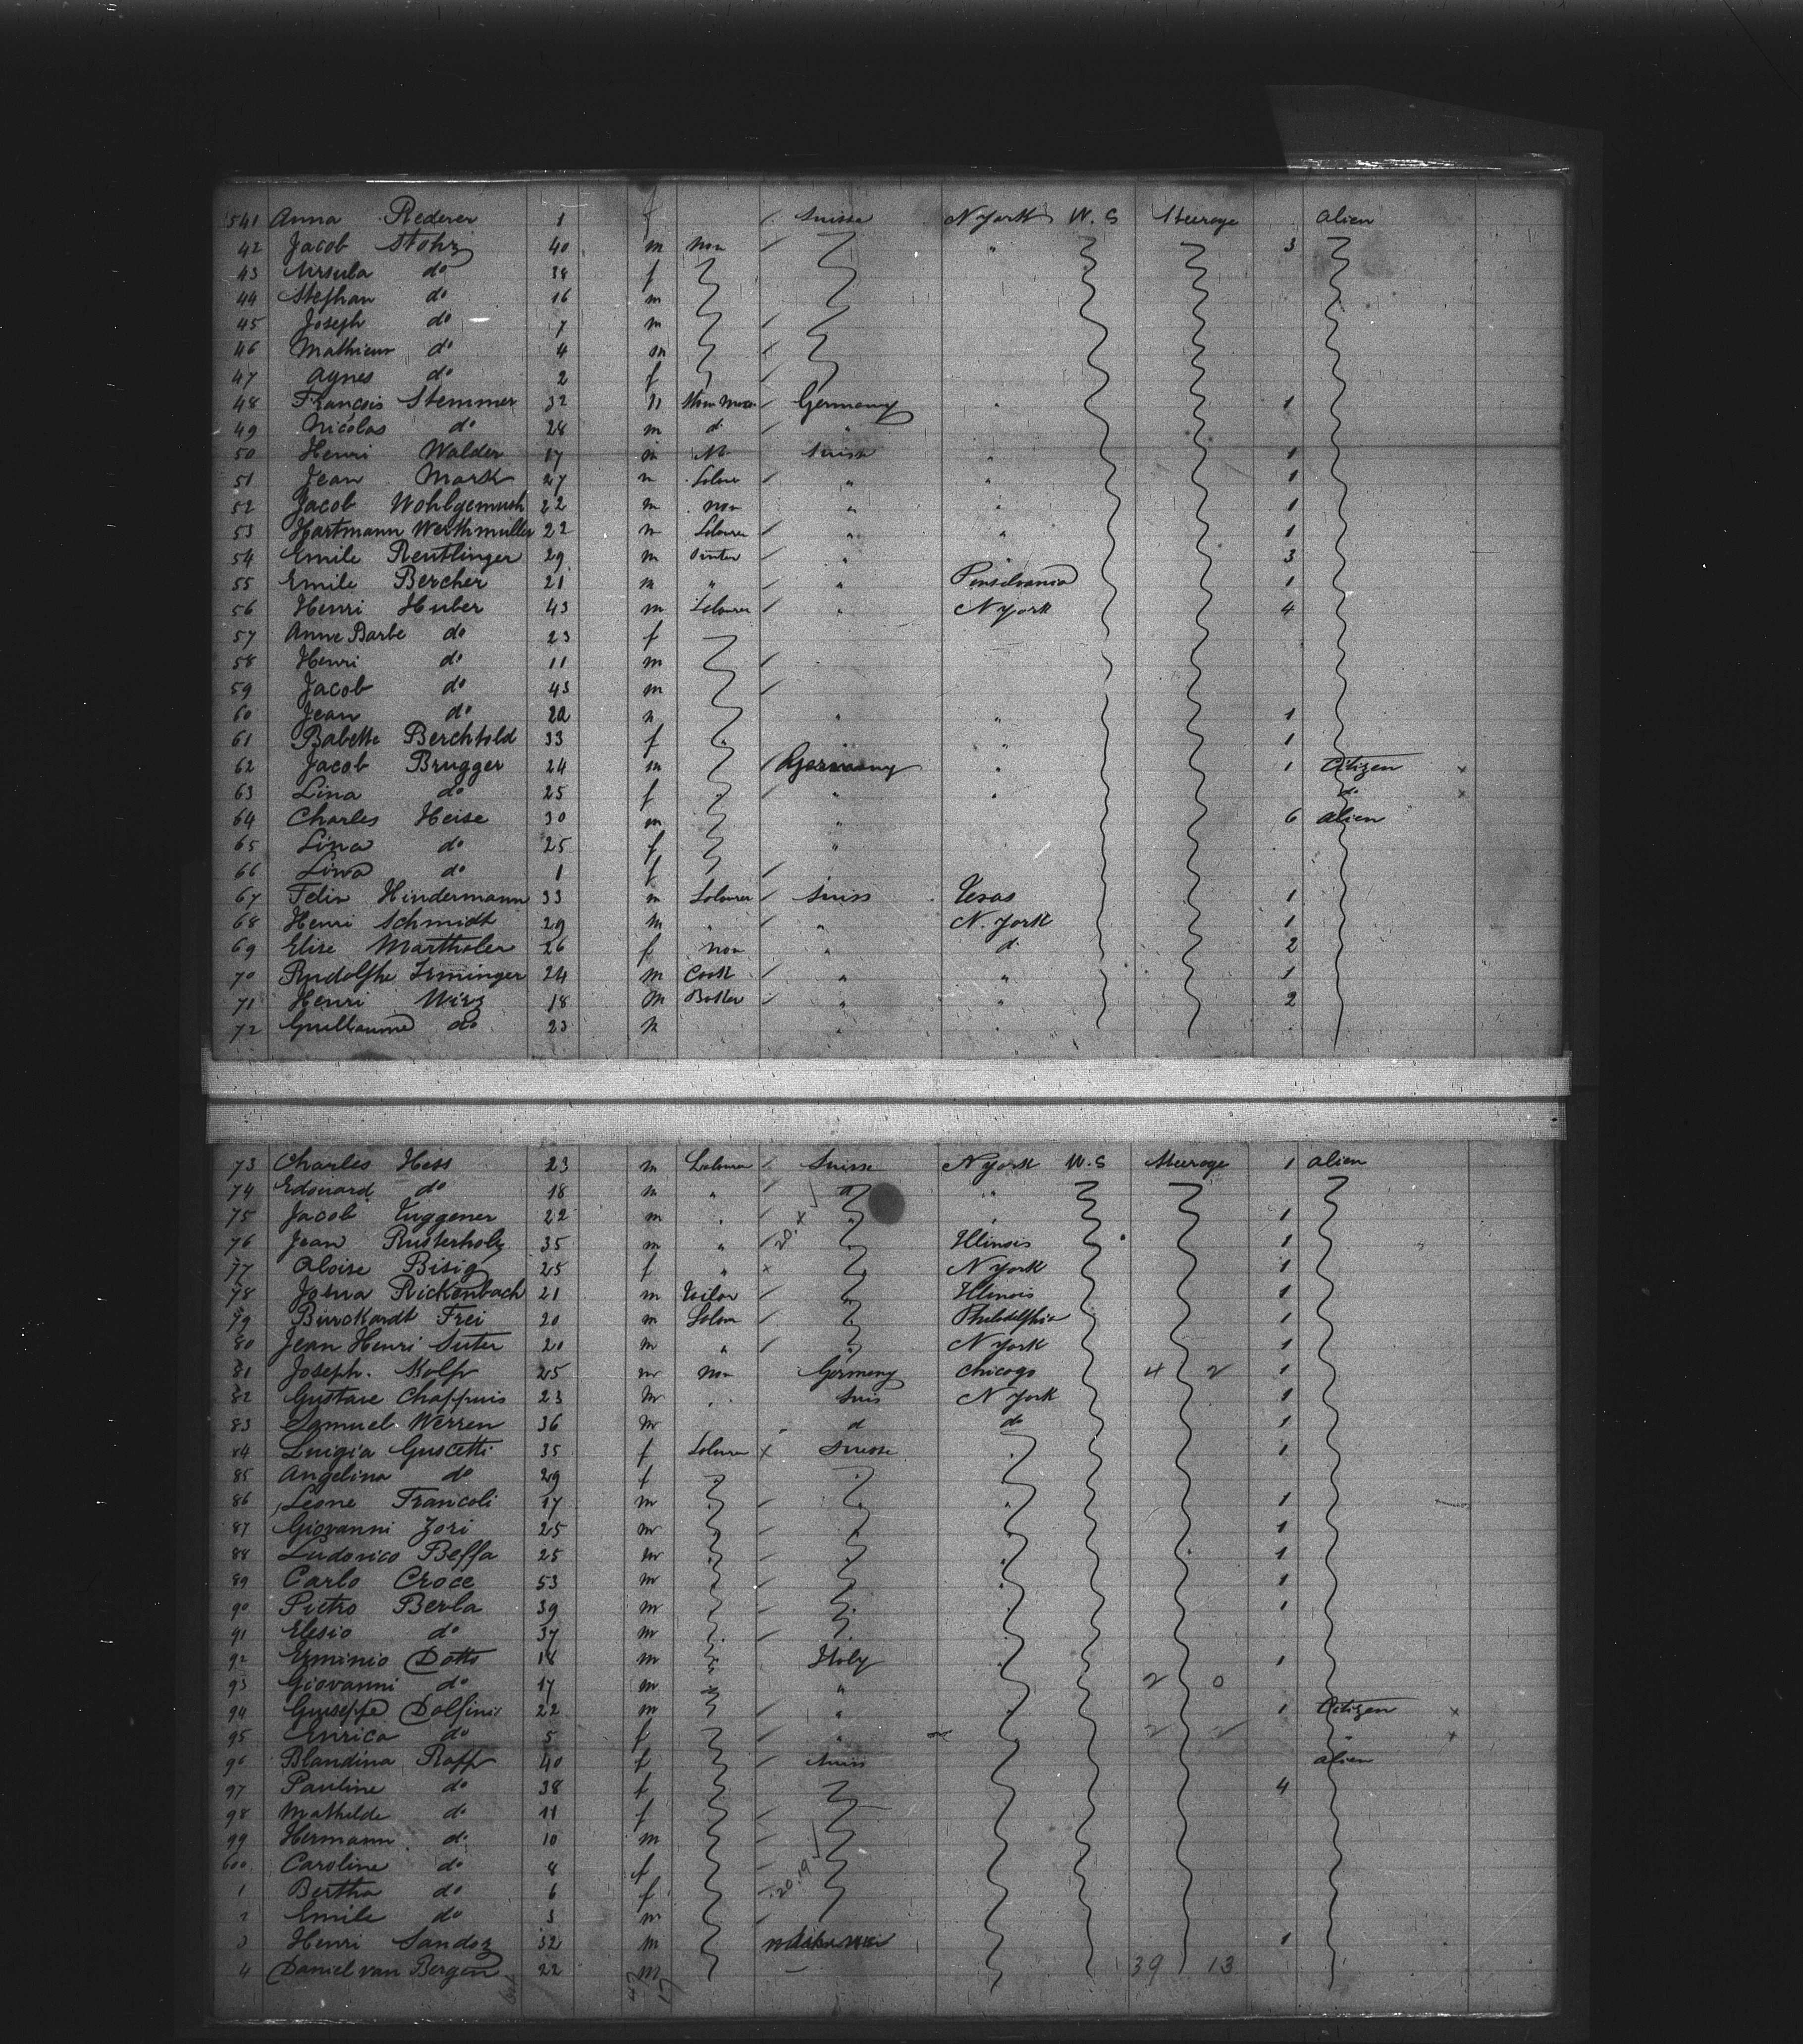 541 Anna Rederer 1 f Suisse N York W. S Steerage alien
42 Jacob Stohr 40 m non " 3
43 Ursula do 38 f
44 Stephan do 16 m
45 Joseph do 7 m
46 Mathieu do 4 m
47 Agnes do 2 f
48 François Stemmer 32 Germany " 1
49 Nicolas do 28 m d "
50 Henri Walder 17 m Suisse " 1
51 Jean Mark 27 m " " 1
52 Jacob Wohlgemuth 22 m non " " 1
53 Hartmann Werthmuller 22 m " " 1
54 Emile Reutlinger 29 m " " 3
55 Emile Bercher 21 m " " Pensilvania 1
56 Henri Huber 43 m " N York 4
57 Anne Barbe do 23 f
58 Henri do 11 m
59 Jacob do 43 m
60 Jean do 22 m " " 1
61 Babette Berchtold 33 f " " 1
62 Jacob Brugger 24 m Germany " 1 Citizen x
63 Lina do 25 f " " do x
64 Charles Heise 30 m " 6 alien
65 Lina do 25 f "
66 Lina do 1 f
67 Felix Hindermann 33 m Suiss Texas 1
68 Henri Schmidt 29 m " " N. York 1
69 Elise Marthaler 26 f non " d 2
70 Rudolphe Irminger 24 m Cook " " 1
71 Henri Wirz 18 m " " 2
72 Guillaume do 23 m " "
73 Charles Hess 23 m Suisse N York W. S Steerage 1 alien
74 Edouard do 18 m " d "
75 Jacob Tuggener 22 m " " " 1
76 Jean Rusterholz 35 m " Illinois 1
77 Aloise Bisig 25 f " x N York 1
78 Josua Rickenbach 21 m Illinois 1
79 Burckardt Frei 20 m Philadelphia 1
80 Jean Henri Suter 20 m " N York 1
81 Joseph Kolps 25 m non Germeny Chicago 4 2 1
82 Gustave Chappuis 23 m " Suis N York 1
83 Samuel Werren 36 m d do 1
84 Luigia Guscetti 35 f x Suisse 1
85 Angelina do 29 f
86 Leone Francoli 17 m 1
87 Giovanni Jori 25 m 1
88 Ludovico Beffa 25 m 1
89 Carlo Croce 53 m 1
90 Pietro Berla 39 m 1
91 Elesio do 37 m
92 Erminio Dotto 18 m Italy 1
93 Giovanni do 17 m " 2 0
94 Guiseppe Dolfini 22 m " 1 Citizen x
95 Enrica do 5 f " 2 2 " x
96 Blandina Rapp 40 f Suiss alien
97 Pauline do 38 f 4
98 Mathilde do 11 f
99 Hermann do 10 m
600 Caroline do 8 f
1 Bertha do 6 f
2 Emile do 3 m
3 Henri Sandoz 32 m 1
4 Daniel van Bergen 22 m 39 13